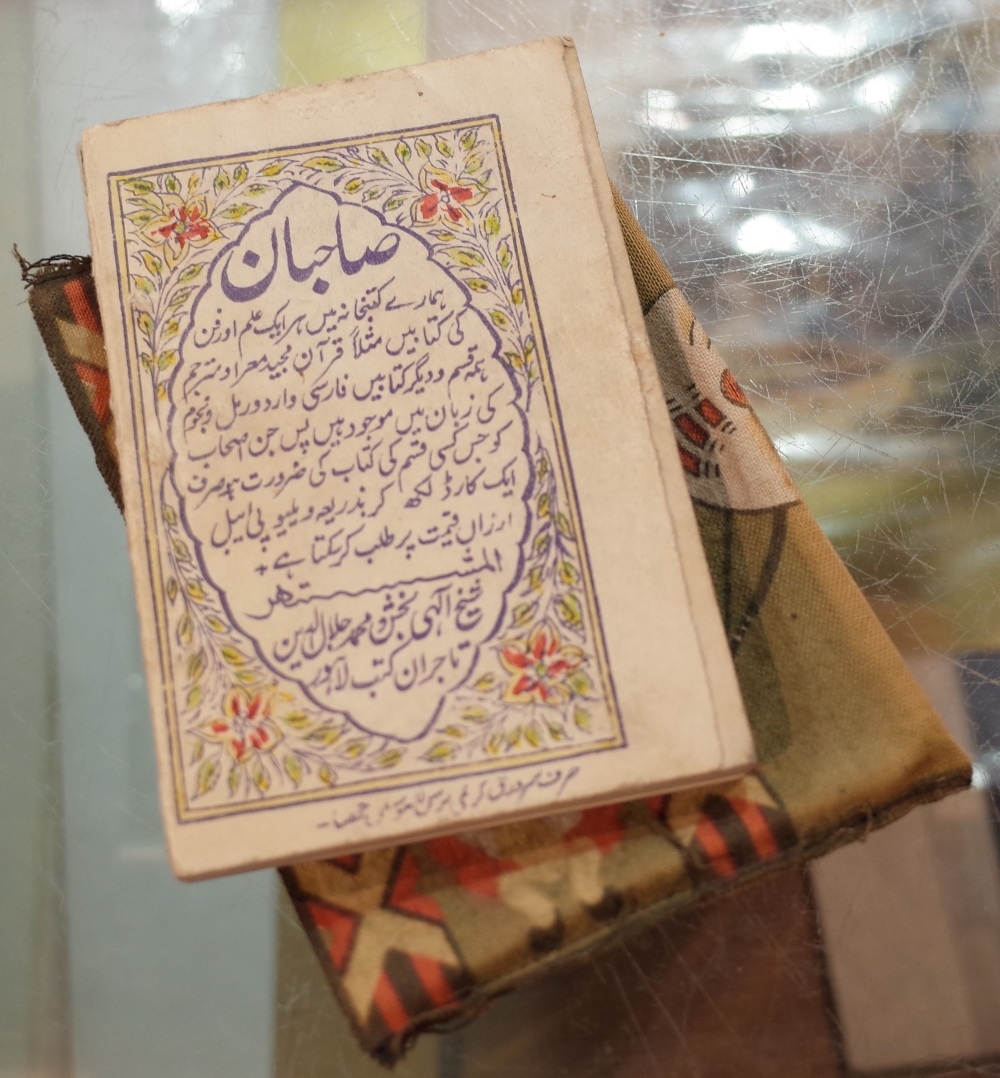 صاحبان
ہمارے کتبخانہ میں ہر ایک علم اور فن
کی کتابیں مثلاً قرآن مجید معرا و مترجم
ہمہ قسم و دیگر کتابیں فارسی و اردو و رمل و نجوم
کی زبان میں موجود ہیں پس جن اصحاب
کو جس کسی قسم کی کتاب کی ضرورت ہو صرف
ایک کارڈ لکھ کر بذریعہ ویلیو پی ایبل
ارزاں قیمت پر طلب کر سکتا ہے +
المشتہر
شیخ الٰہی بخش و محمد جلال الدین
تاجران کتب لاہور